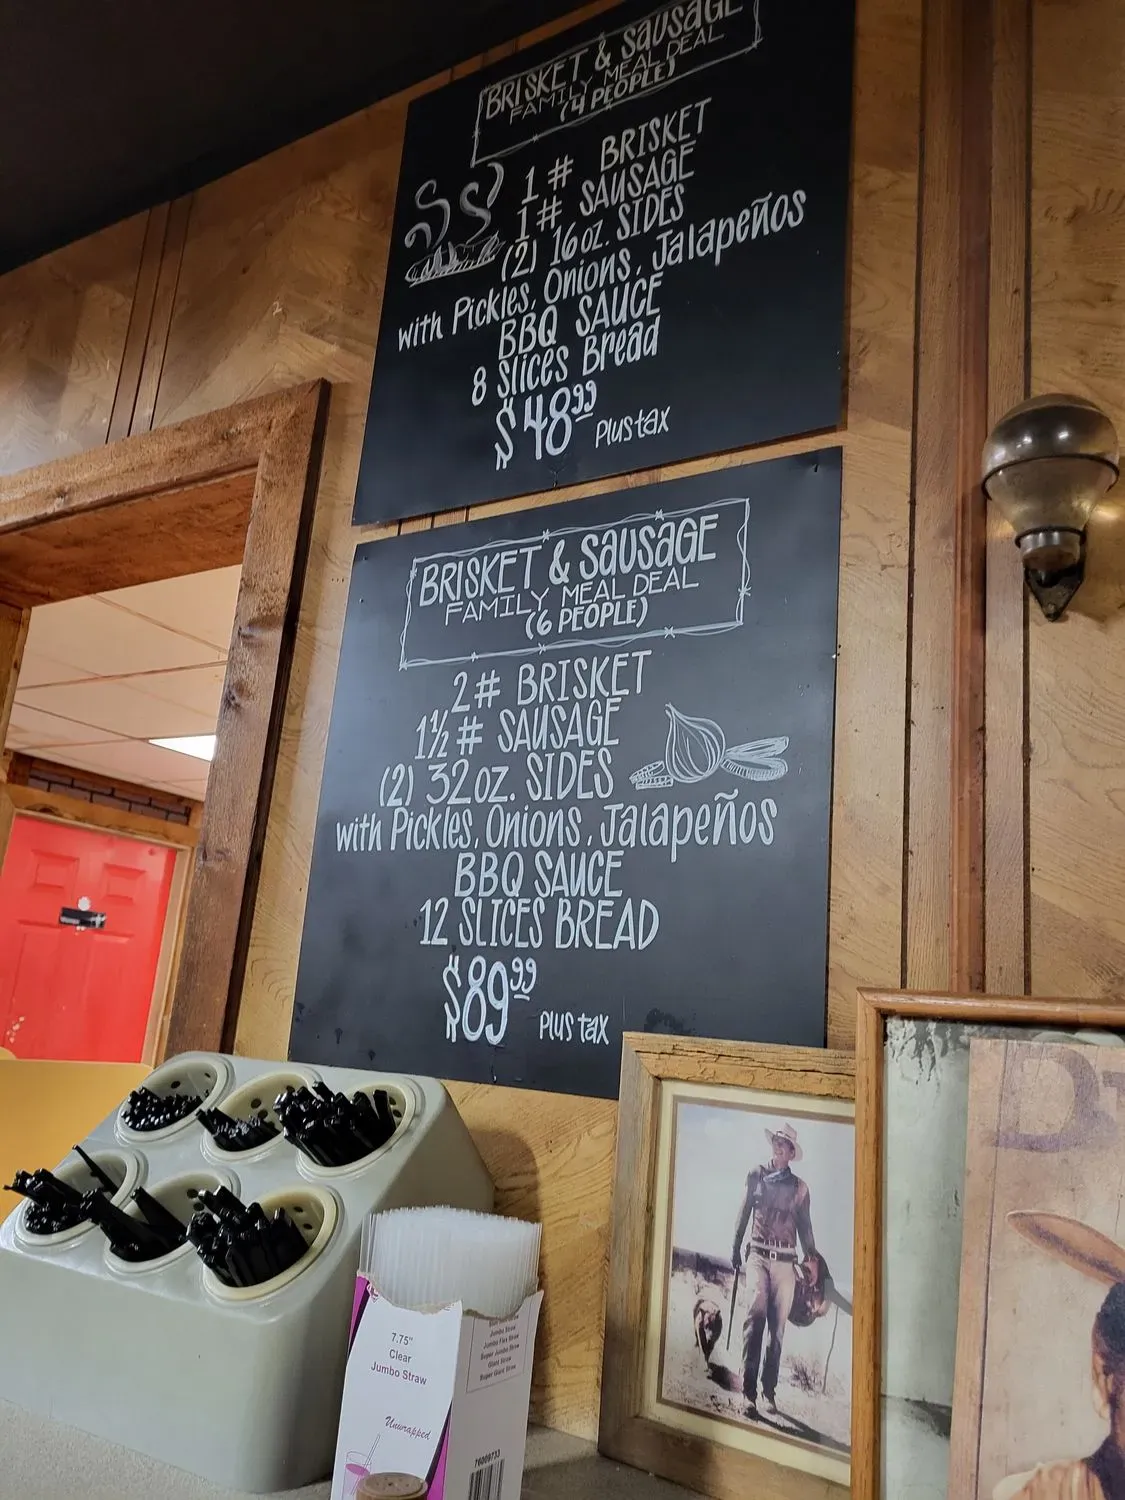 BRISKET & SAUSAGE
FAMILY MEAL DEAL
(4 PEOPLE)
1# BRISKET
1# SAUSAGE
(2) 16 oz. SIDES
with Pickles, Onions, Jalapeños
BBQ SAUCE
8 Slices Bread
$48.99 Plus tax
BRISKET & SAUSAGE
FAMILY MEAL DEAL
(6 PEOPLE)
2# BRISKET
1½# SAUSAGE
(2) 32 oz. SIDES
with Pickles, Onions, Jalapeños
BBQ SAUCE
12 SLICES BREAD
$89.99 PLUS tax
7.75"
Clear
Jumbo Straw
Unwrapped
Jumbo Straw
Jumbo Flex Straw
Super Jumbo Straw
Giant Straw
Super Giant Straw